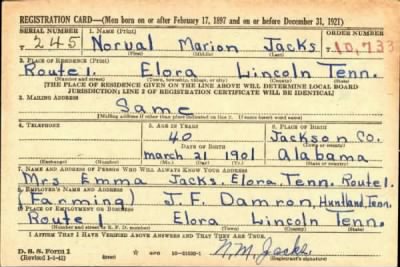 REGISTRATION CARD—(Men born on or after February 17, 1897 and on or before December 31, 1921)
SERIAL NUMBER 1. NAME (Print) ORDER NUMBER
T 245 Norval Marion Jacks T 10,733
(First) (Middle) (Last)
2. PLACE OF RESIDENCE (Print)
Route 1. Elora Lincoln Tenn.
(Number and street) (Town, township, village, or city) (County) (State)
[THE PLACE OF RESIDENCE GIVEN ON THE LINE ABOVE WILL DETERMINE LOCAL BOARD
JURISDICTION; LINE 2 OF REGISTRATION CERTIFICATE WILL BE IDENTICAL]
3. MAILING ADDRESS
Same
[Mailing address if other than place indicated on line 2. If same insert word same]
4. TELEPHONE 5. AGE IN YEARS 6. PLACE OF BIRTH
40 Jackson Co.
DATE OF BIRTH (Town or county)
march 21 1901 Alabama
(Exchange) (Number) (Mo.) (Day) (Yr.) (State or country)
7. NAME AND ADDRESS OF PERSON WHO WILL ALWAYS KNOW YOUR ADDRESS
Mrs Emma Jacks, Elora, Tenn. Route 1.
8. EMPLOYER'S NAME AND ADDRESS
(Farming) J.F. Damron, Huntland, Tenn.
9. PLACE OF EMPLOYMENT OR BUSINESS
Route 1 Elora Lincoln Tenn.
(Number and street or R. F. D. number) (Town) (County) (State)
I AFFIRM THAT I HAVE VERIFIED ABOVE ANSWERS AND THAT THEY ARE TRUE.
D. S. S. Form 1
(Revised 1-1-42) GPO 16—21630-1 N.M. Jacks
(Registrant's signature)